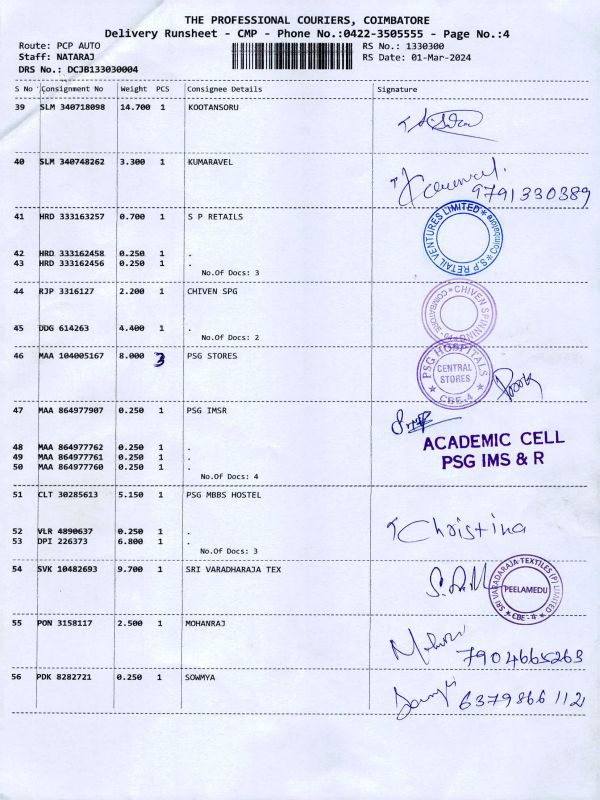 THE PROFESSIONAL COURIERS, COIMBATORE
Delivery Runsheet - CMP - Phone No.:0422-3505555 - Page No.:4
Route: PCP AUTO RS No.: 1330300
Staff: NATARAJ RS Date: 01-Mar-2024
DRS No.: DCJB133030004
S No Consignment No Weight PCS Consignee Details Signature
39 SLM 340718098 14.700 1 KOOTANSORU
40 SLM 340748262 3.300 1 KUMARAVEL
9791330389
41 HRD 333163257 0.700 1 S P RETAILS
S.P RETAIL VENTURES LIMITED * Coimbatore *
42 HRD 333162458 0.250 1 .
43 HRD 333162456 0.250 1 .
No.Of Docs: 3
44 RJP 3316127 2.200 1 CHIVEN SPG
CHIVEN SPINNING COIMBATORE
45 DDG 614263 4.400 1 .
No.Of Docs: 2
46 MAA 104005167 8.000 3 PSG STORES
PSG HOSPITALS
CENTRAL
STORES
CBE-4
47 MAA 864977907 0.250 1 PSG IMSR
48 MAA 864977762 0.250 1 .
ACADEMIC CELL
49 MAA 864977761 0.250 1 .
PSG IMS & R
50 MAA 864977760 0.250 1 .
No.Of Docs: 4
51 CLT 30285613 5.150 1 PSG MBBS HOSTEL
Christina
52 VLR 4890637 0.250 1 .
53 DPI 226373 6.800 1 .
No.Of Docs: 3
54 SVK 10482693 9.700 1 SRI VARADHARAJA TEX
SRI VARADARAJA TEXTILES (P) LIMITED
PEELAMEDU
CBE-4
55 PON 3158117 2.500 1 MOHANRAJ
7904665263
56 PDK 8282721 0.250 1 SOWMYA
6379866112